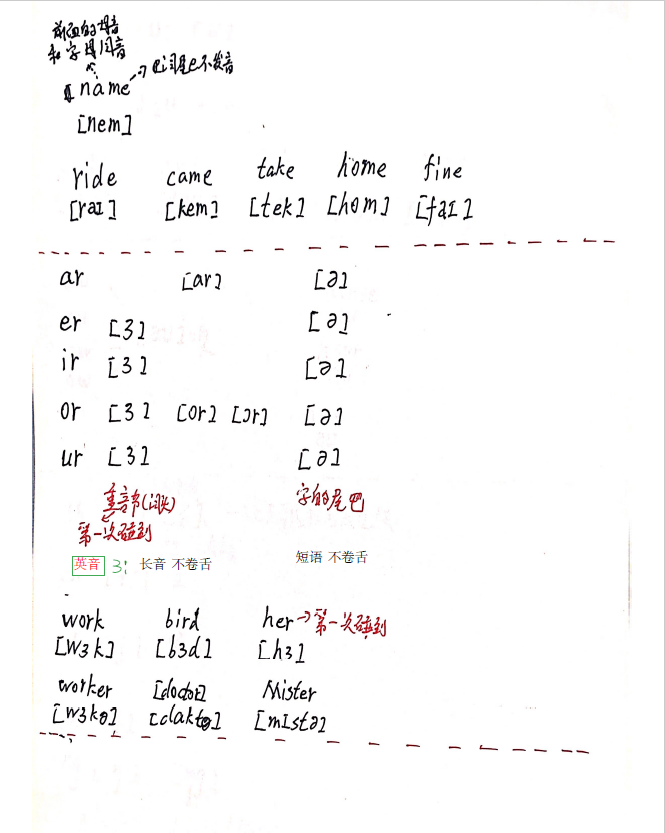 前面的母音
和字母同音
name → e词尾e不发音
[nem]
ride came take home fine
[raI] [kem] [tek] [hom] [faI]
ar [ar] [ə]
er [3] [ə]
ir [3] [ə]
or [3] [or] [ɔr] [ə]
ur [3] [ə]
重音节(词头) 字的尾巴
第一次碰到
英音 3: 长音 不卷舌 短语 不卷舌
work bird her → 第一次碰到
[w3k] [b3d] [h3]
worker Mister
[w3kə] [mIstə]